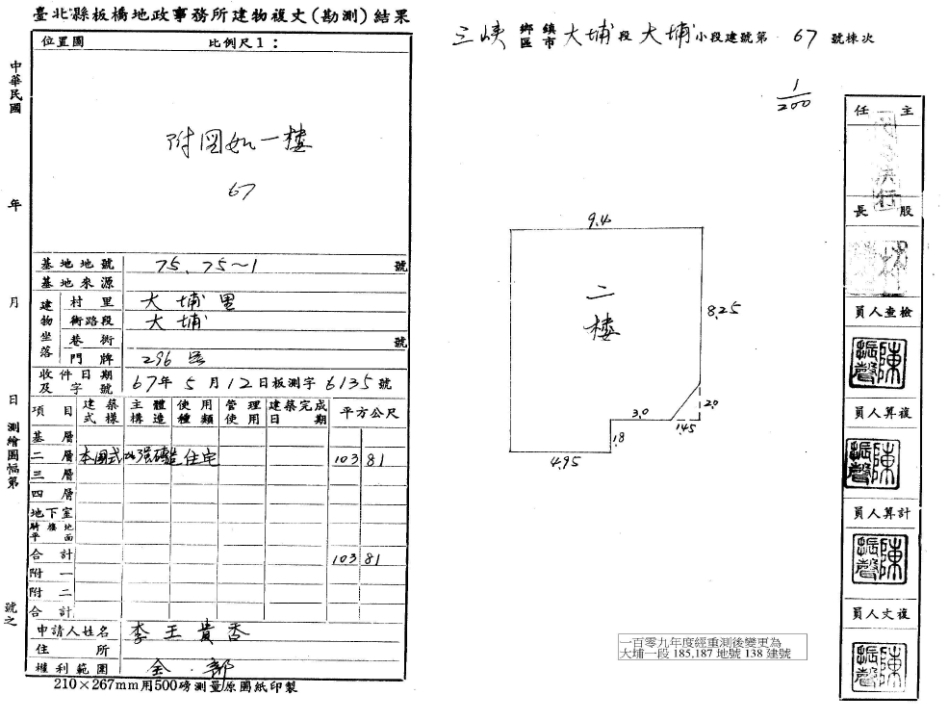 臺北縣板橋地政事務所建物複丈(勘測)結果
位置圖 比例尺1:
附圖如一樓
67
中華民國 年 月 日測繪圖幅第 號之
基地地號 75、75~1 號
基地來源
建物坐落
村里 大埔里
街路段 大埔
巷衖 號
門牌 296號
收件日期及字號 67年5月12日板測字6135號
項目 建築式樣 主體構造 使用種類 管理使用 建築完成日期 平方公尺
基層
二層 本國式 加强磚造 住宅 103 81
三層
四層
地下室
騎樓地平面
合計 103 81
附一
附二
合計
申請人姓名 李王貴香
住所
權利範圍 全部
210×267mm用500磅測量原圖紙印製
三峽 鄉鎮區市 大埔段大埔小段建號第 67 號棟次
1/200
9.4
二樓
8.25
2.0
3.0
1.45
1.8
4.95
主任
股長
檢查人員
陳振聲
複算人員
陳振聲
計算人員
陳振聲
複丈人員
陳振聲
一百零九年度經重測後變更為
大埔一段185,187地號138建號